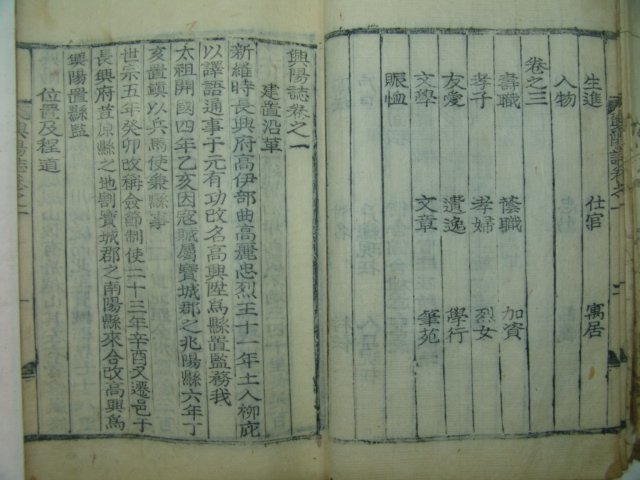 生進 仕宦 寓居
人物
卷之三
壽職 蔭職 加資
孝子 孝婦 烈女
友愛 遺逸 學行
文學 文章 筆苑
賑恤
興陽誌卷之一
建置沿革
新維時長興府高伊部曲高麗忠烈王十一年土人柳庇
以譯語通事于元有功改名高興陞爲縣置監務我
太祖開國四年乙亥因寇賊屬寶城郡之兆陽縣六年丁
亥置鎭以兵馬使兼縣事
世宗五年癸卯改稱僉節制使二十三年辛酉又遷邑于
長興府荳原縣之地割寶城郡之南陽縣來合改高興爲
興陽置縣監
位置及程道
興陽誌卷之一